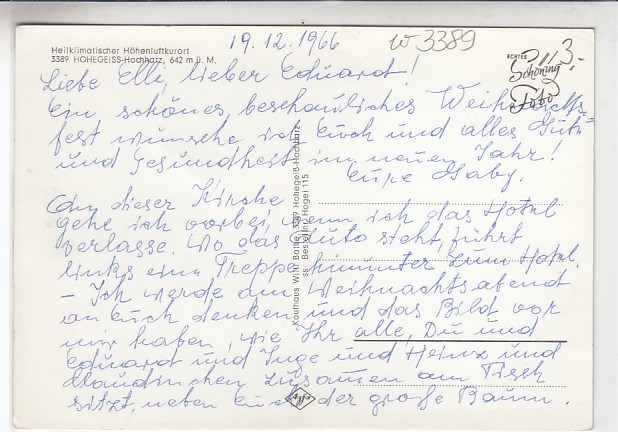 19.12.1966
w 3389
Heilklimatischer Höhenluftkurort
3389 HOHEGEISS-Hochharz, 642 m ü. M.
ECHTES
Schöning
Foto
3,-
Liebe Elli, lieber Eduard!
Ein schönes beschauliches Weihnachts-
fest wünsche ich Euch und alles Gute
und Gesundheit im neuen Jahr!
Eure Gaby.
An dieser Kirche
gehe ich vorbei, wenn ich das Hotel
verlasse. Wo das Auto steht, führt
links eine Treppe hinunter zum Hotel.
- Ich werde am Weihnachtsabend
an Euch denken und das Bild vor
mir haben, wie Ihr alle, Du und
Eduard und Inge und Heinz und
Claudinchen zusammen am Tisch
sitzt, neben Euch der große Baum.
Kaufhaus Willi 3389 Hohegeiß-Hochharz
ss Bestell-Nr. Hogei 115
Agfa